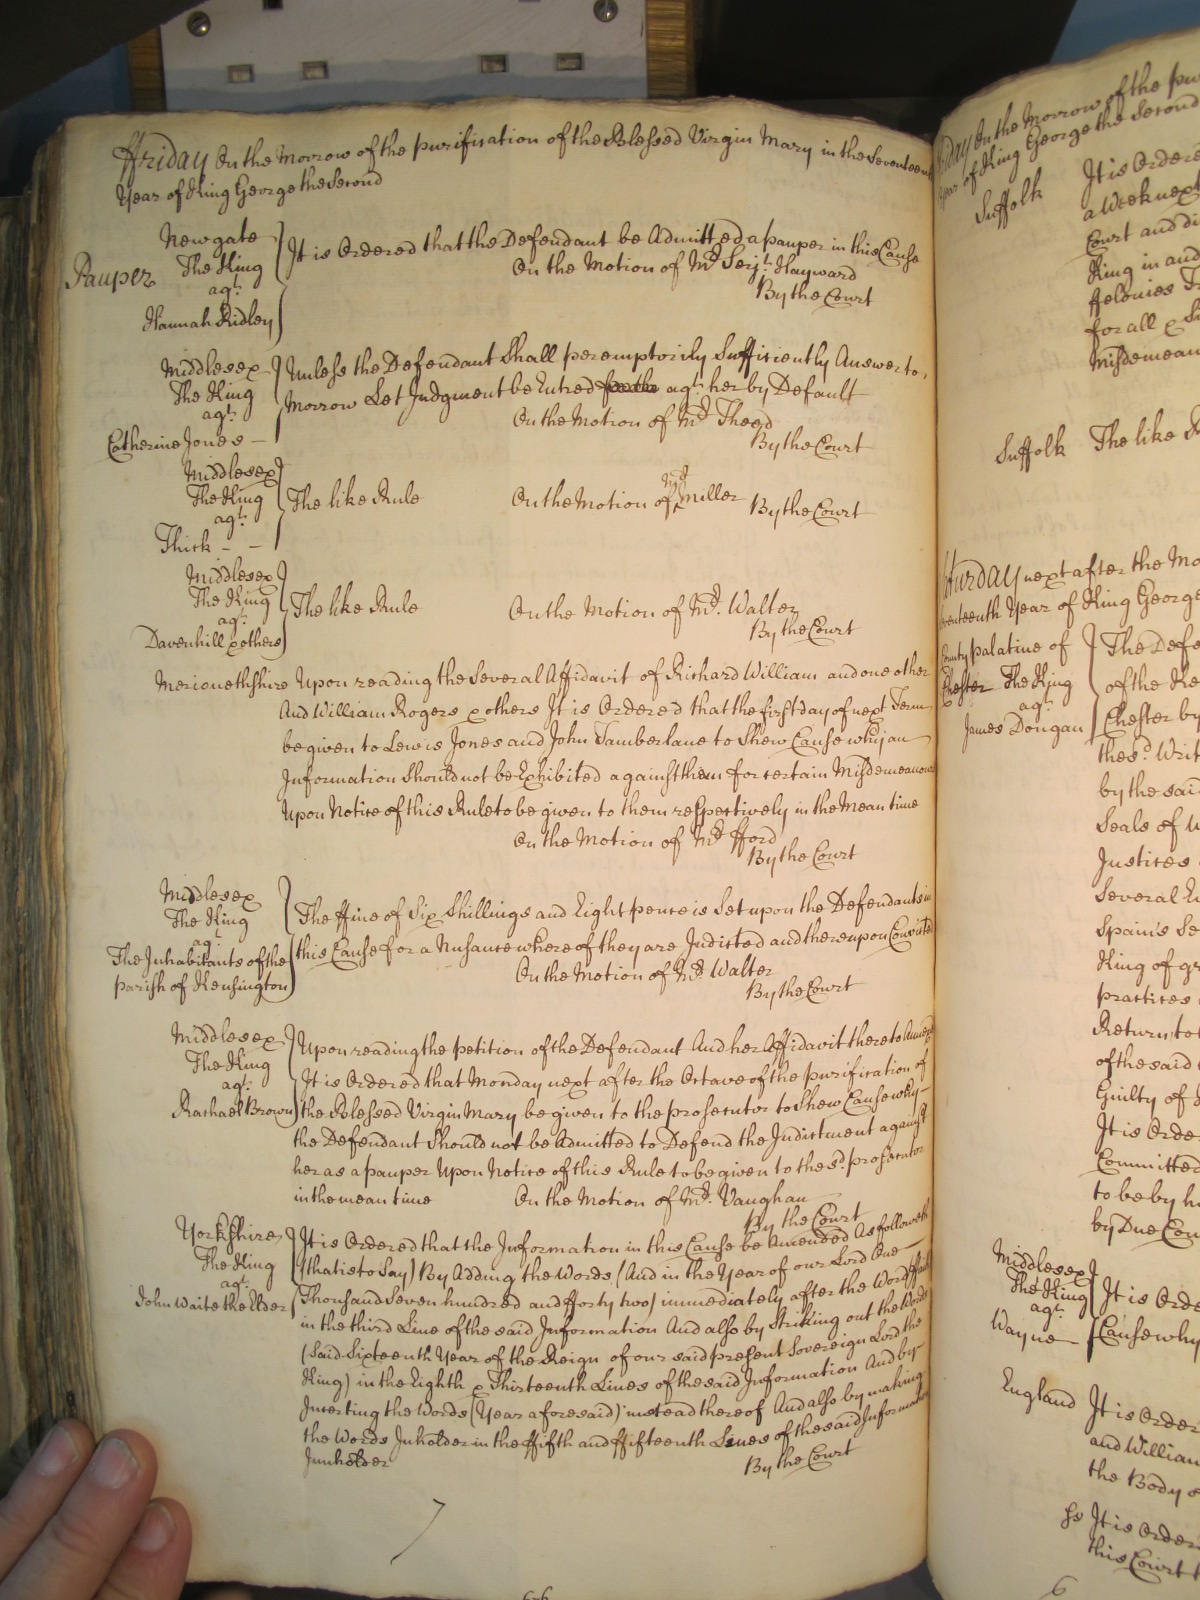 Ffriday On the Morrow of the purification of the Blessed Virgin Mary in the Seventeenth
Year of King George the Second
Newgate
Pauper The King
agt.
Hannah Ridley
It is Ordered that the Defendant be Admitted a pauper in this Cause
On the Motion of Mr. Serjt. Hayward
By the Court
Middlesex
The King
agt.
Catherine Jones —
Unless the Defendant Shall peremptorily Sufficiently Answer to
Morrow Let Judgment be Entred agt. her by Default
On the Motion of Mr. Theed
By the Court
Middlesex
The King
agt.
Thick — —
The like Rule On the Motion of Mr. Miller By the Court
Middlesex
The King
agt.
Davenhill & others
The like Rule On the Motion of Mr. Walter
By the Court
Merionethshire Upon reading the Several Affidavit of Richard William and one other
And William Rogers & others It is Ordered that the first day of next Term
be given to Lewis Jones and John Tamberlane to Shew Cause why an
Information Should not be Exhibited against them for certain Misdemeanours
Upon Notice of this Rule to be given to them respectively in the Mean time
On the Motion of Mr. fford
By the Court
Middlesex
The King
agt.
The Inhabitants of the
parish of Kensington
The ffine of Six Shillings and Eight pence is Set upon the Defendants in
this Cause for a Nusance whereof they are Indicted and thereupon Convicted
On the Motion of Mr. Walter
By the Court
Middlesex
The King
agt.
Rachael Brown
Upon reading the petition of the Defendant And her Affidavit thereto Annexed
It is Ordered that Monday next after the Octave of the purification of
the Blessed Virgin Mary be given to the prosecutor to Shew Cause why
the Defendant Should not be Admitted to Defend the Indictment against
her as a pauper Upon Notice of this Rule to be given to the sd. prosecutor
in the mean time On the Motion of Mr. Vaughan
By the Court
Yorkshire
The King
agt.
John Waite the Elder
It is Ordered that the Information in this Cause be Amended As followeth
(that is to Say) By Adding the Words (And in the Year of our Lord One
Thousand Seven hundred and fforty two) immediately after the Word
in the third Line of the said Information And also by Striking out the Words
(Said Sixteenth Year of the Reign of our said present Sovereign Lord the
King) in the Eighth & Thirteenth Lines of the said Information And by
Inserting the Words (Year aforesaid) instead thereof And also by making
the Words Inholder in the ffifth and ffifteenth Lines of the said Information
Innholder
By the Court
66
On the Morrow of the
of King George the Second
Suffolk
It is Ordered
a Week next
Court and
King in and
ffelonies
for all &
Misdemean
Suffolk The like
next after the
Year of King George
palatine of
Chester The King
agt.
James Dougan
The Defe
of the
Chester by
the sd. Writ
by the said
Seals of
Justices
Several
Spain's
King of
practices
Return to
of the said
Guilty of
It is Orde
Committed
to be by
by Due
Middlesex
The King
agt.
Wayne
It is Orde
Cause why
England It is Order
and William
the Body
It is Order
this Court
6